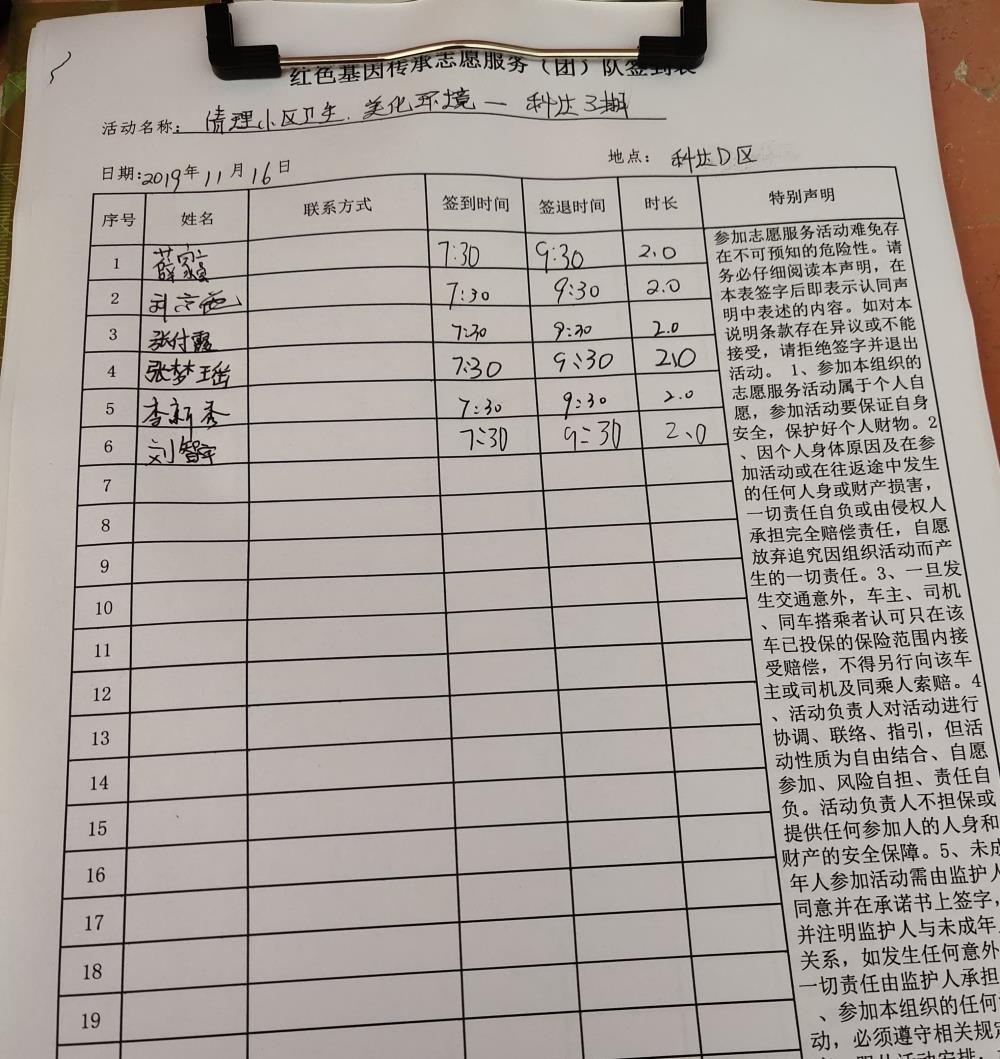 红色基因传承志愿服务（团）队签到表
活动名称：清理小区卫生.美化环境一科达3期
日期:2019年11月16日 地点：科达D区
序号 姓名 联系方式 签到时间 签退时间 时长 特别声明
1 7:30 9:30 2.0
2 7:30 9:30 2.0
3 张付霞 7:30 9:30 2.0
4 张梦瑶 7:30 9:30 2.0
5 李新秀 7:30 9:30 2.0
6 刘智宇 7:30 9:30 2.0
7
8
9
10
11
12
13
14
15
16
17
18
19
参加志愿服务活动难免存
在不可预知的危险性。请
务必仔细阅读本声明，在
本表签字后即表示认同声
明中表述的内容。如对本
说明条款存在异议或不能
接受，请拒绝签字并退出
活动。 1、参加本组织的
志愿服务活动属于个人自
愿，参加活动要保证自身
安全，保护好个人财物。2
、因个人身体原因及在参
加活动或在往返途中发生
的任何人身或财产损害，
一切责任自负或由侵权人
承担完全赔偿责任，自愿
放弃追究因组织活动而产
生的一切责任。3、一旦发
生交通意外，车主、司机
、同车搭乘者认可只在该
车已投保的保险范围内接
受赔偿，不得另行向该车
主或司机及同乘人索赔。4
、活动负责人对活动进行
协调、联络、指引，但活
动性质为自由结合、自愿
参加、风险自担、责任自
负。活动负责人不担保或
提供任何参加人的人身和
财产的安全保障。5、未成
年人参加活动需由监护人
同意并在承诺书上签字，
并注明监护人与未成年人
关系，如发生任何意外
一切责任由监护人承担
、参加本组织的任何
动，必须遵守相关规定